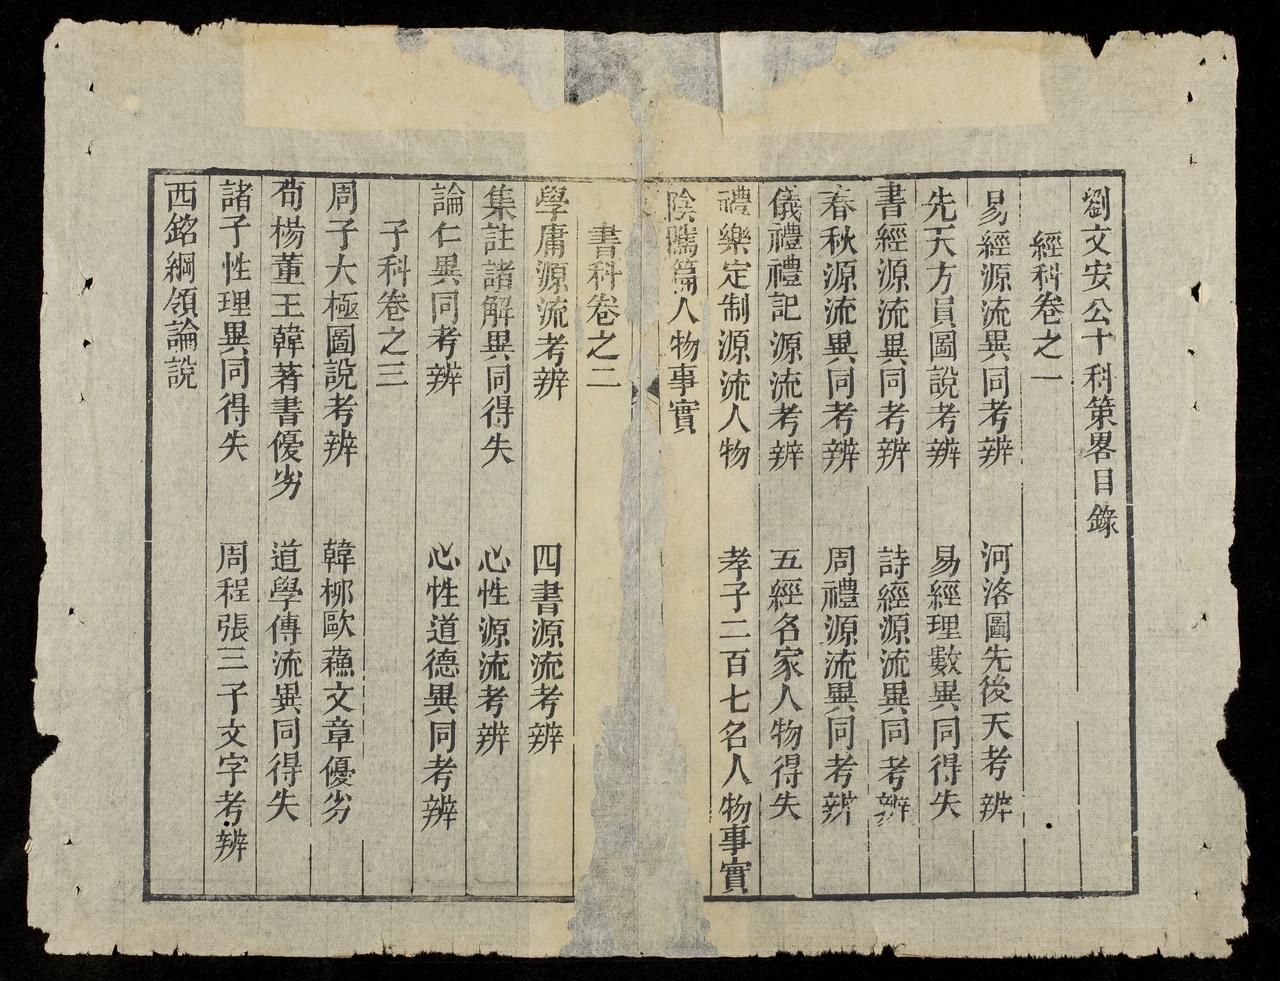 劉文安公十科策畧目錄
經科卷之一
易經源流異同考辨　河洛圖先後天考辨
先天方員圖說考辨　易經理數異同得失
書經源流異同考辨　詩經源流異同考辨
春秋源流異同考辨　周禮源流異同考辨
儀禮禮記源流考辨　五經名家人物得失
禮樂定制源流人物　孝子二百七名人物事實
陰隲篇人物事實
書科卷之二
學庸源流考辨　四書源流考辨
集註諸解異同得失　心性源流考辨
論仁異同考辨　心性道德異同考辨
子科卷之三
周子大極圖說考辨　韓栁歐蘓文章優劣
荀楊董王韓著書優劣　道學傳流異同得失
諸子性理異同得失　周程張三子文字考辨
西銘綱領論說